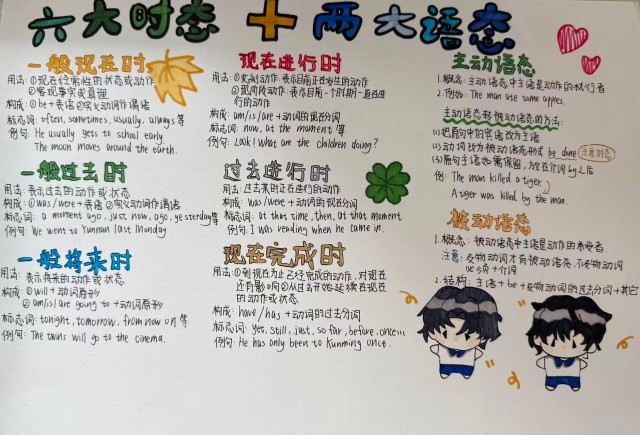 六大时态＋两大语态
一般现在时
用法:①现在经常性的状态或动作
②客观事实或真理
构成:①be+表语②实义动词作谓语
标志词:often, sometimes, usually, always等
例句: He usually gets to school early.
The moon moves around the earth.
一般过去时
用法:表示过去的动作或状态
构成:①was/were+表语②实义动词作谓语
标志词: a moment ago, just now, ago, yesterday等
例句: We went to Yunnan last Monday
一般将来时
用法:表示将来的动作或状态
构成:①will+动词原形
②am/is/are going to+动词原形
标志词:tonight, tomorrow, from now on 等
例句: The twins will go to the cinema.
现在进行时
用法:①表示目前正在发生的动作
②现阶段动作:表示目前一个时期一直在进
行的动作
构成: am/is/are+动词的现在分词
标志词: now, at the moment 等
例句: Look! What are the children doing?
过去进行时
用法:过去某时正在进行的动作
构成: was/were+动词的现在分词
标志词: at that time, then, at that moment
例句: I was reading when he came in.
现在完成时
用法:①到现在为止已经完成的动作,对现在
还有影响②从过去开始延续在现在
的动作或状态
构成: have/has+动词的过去分词
标志词: yet, still, just, so far, before, once
例句: He has only been to Kunming once.
主动语态
1.概念:主动语态中主语是动作的执行者
2.例句: The man ate some apples.
主动语态转被动语态的方法:
(1)把原句中的宾语改为主语
(2)动词改为被动语态形式 be done 注意时态
(3)原句主语如需保留,放在介词by之后
例: The man killed a tiger.
A tiger was killed by the man.
被动语态
1.概念:被动语态中主语是动作的承受者.
注意:及物动词才有被动语态,不及物动词
必须+介词
2.结构:主语+be+及物动词的过去分词+其它